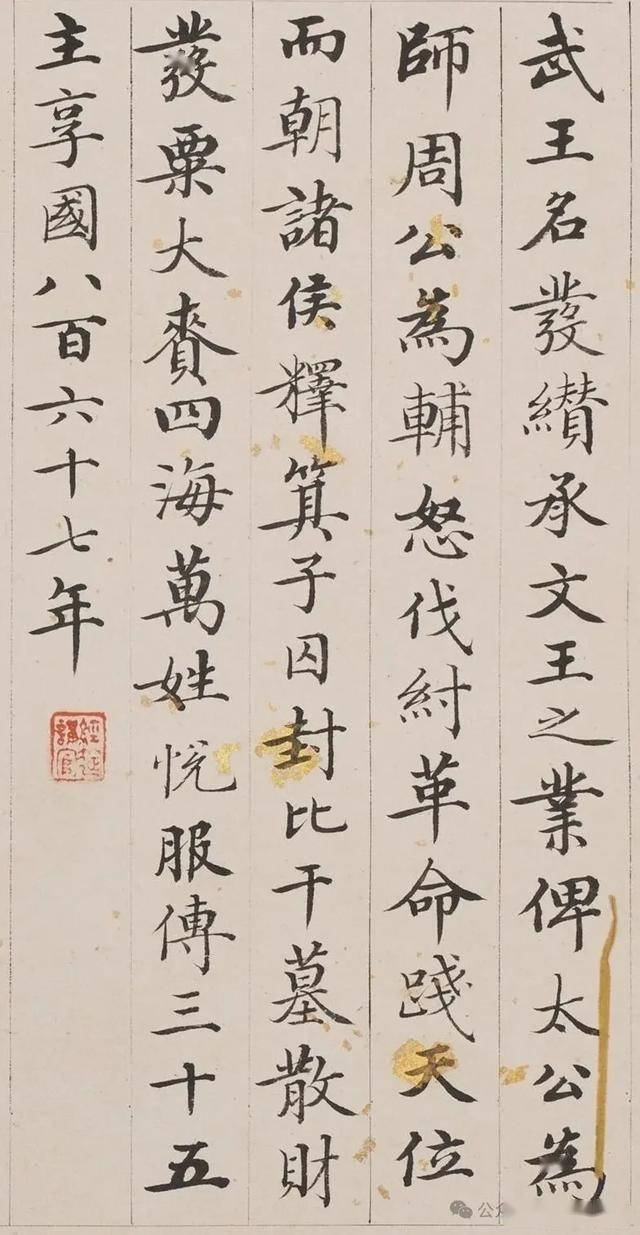 武王名發纘承文王之業俾太公為
師周公為輔怒伐紂革命踐天位
而朝諸侯釋箕子囚封比干墓散財
發粟大賚四海萬姓悅服傳三十五
主享國八百六十七年
經筵講官